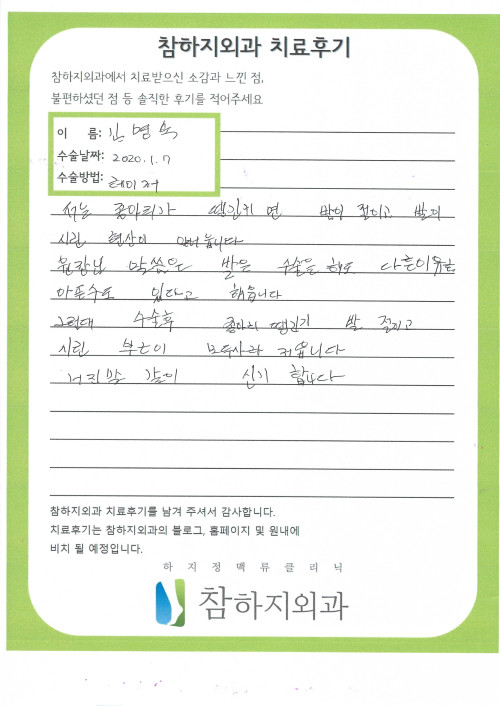 참하지외과 치료후기
참하지외과에서 치료받으신 소감과 느낀 점,
불편하셨던 점 등 솔직한 후기를 적어주세요
이 름: 민명숙
수술날짜: 2020.1.7
수술방법: 레이저
저는 종아리가 땡긴키 면 밤이 절이고 발과
시린 현상이 있었습니다
원장님 말씀은 발은 수술을 해도 다른이유로
아플수도 있다고 했습니다
그런대 수술후 종아리 땡긴기 발 절리고
시린 부근이 모두사라 저읍니다
거지말 같이 신기 합니다
참하지외과 치료후기를 남겨 주셔서 감사합니다.
치료후기는 참하지외과의 블로그, 홈페이지 및 원내에
비치 될 예정입니다.
하지정맥류클리닉
참하지외과